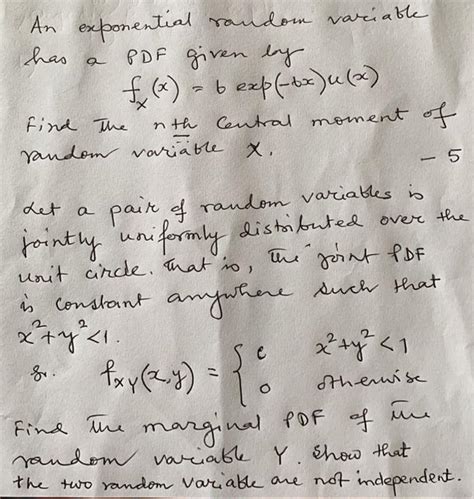 An exponential random variable
has a PDF given by
f_X(x) = b exp(-bx)u(x)
Find The nth Central moment of
random variable X.
- 5
Let a pair of random variables is
jointly uniformly distributed over the
unit circle. That is, The joint PDF
is constant anywhere such that
x²+y²<1.
f_XY(x,y) = { c x²+y²<1
0 otherwise
Find The marginal PDF of The
random variable Y. Show that
the two random variable are not independent.